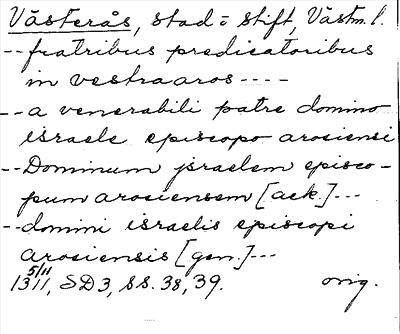 Västerås, stad = stift, Västm. l.
-- fratribus predicatoribus
in vestraaros ----
-- a venerabili patre domino
israele episcopo arosiensi
-- Dominum jsraelem episco-
pum arosiensem [ack.] ---
-- domini israelis episcopi
arosiensis [gen.] ---
5/11
1311, SD 3, ss. 38, 39. orig.